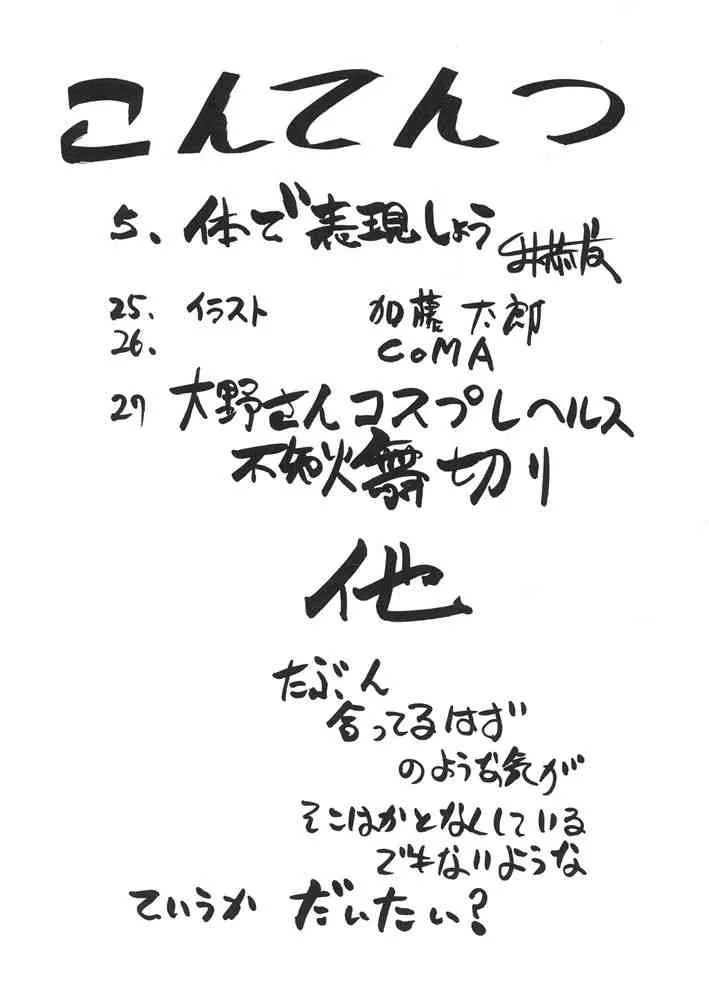 こんてんつ
5、体で表現しよう
25. イラスト 加藤太郎
26. COMA
27 大野さんコスプレヘルス
不知火舞切り
他
たぶん
合ってるはず
のような気が
そこはかとなくしている
でもないような
ていうか だいたい?